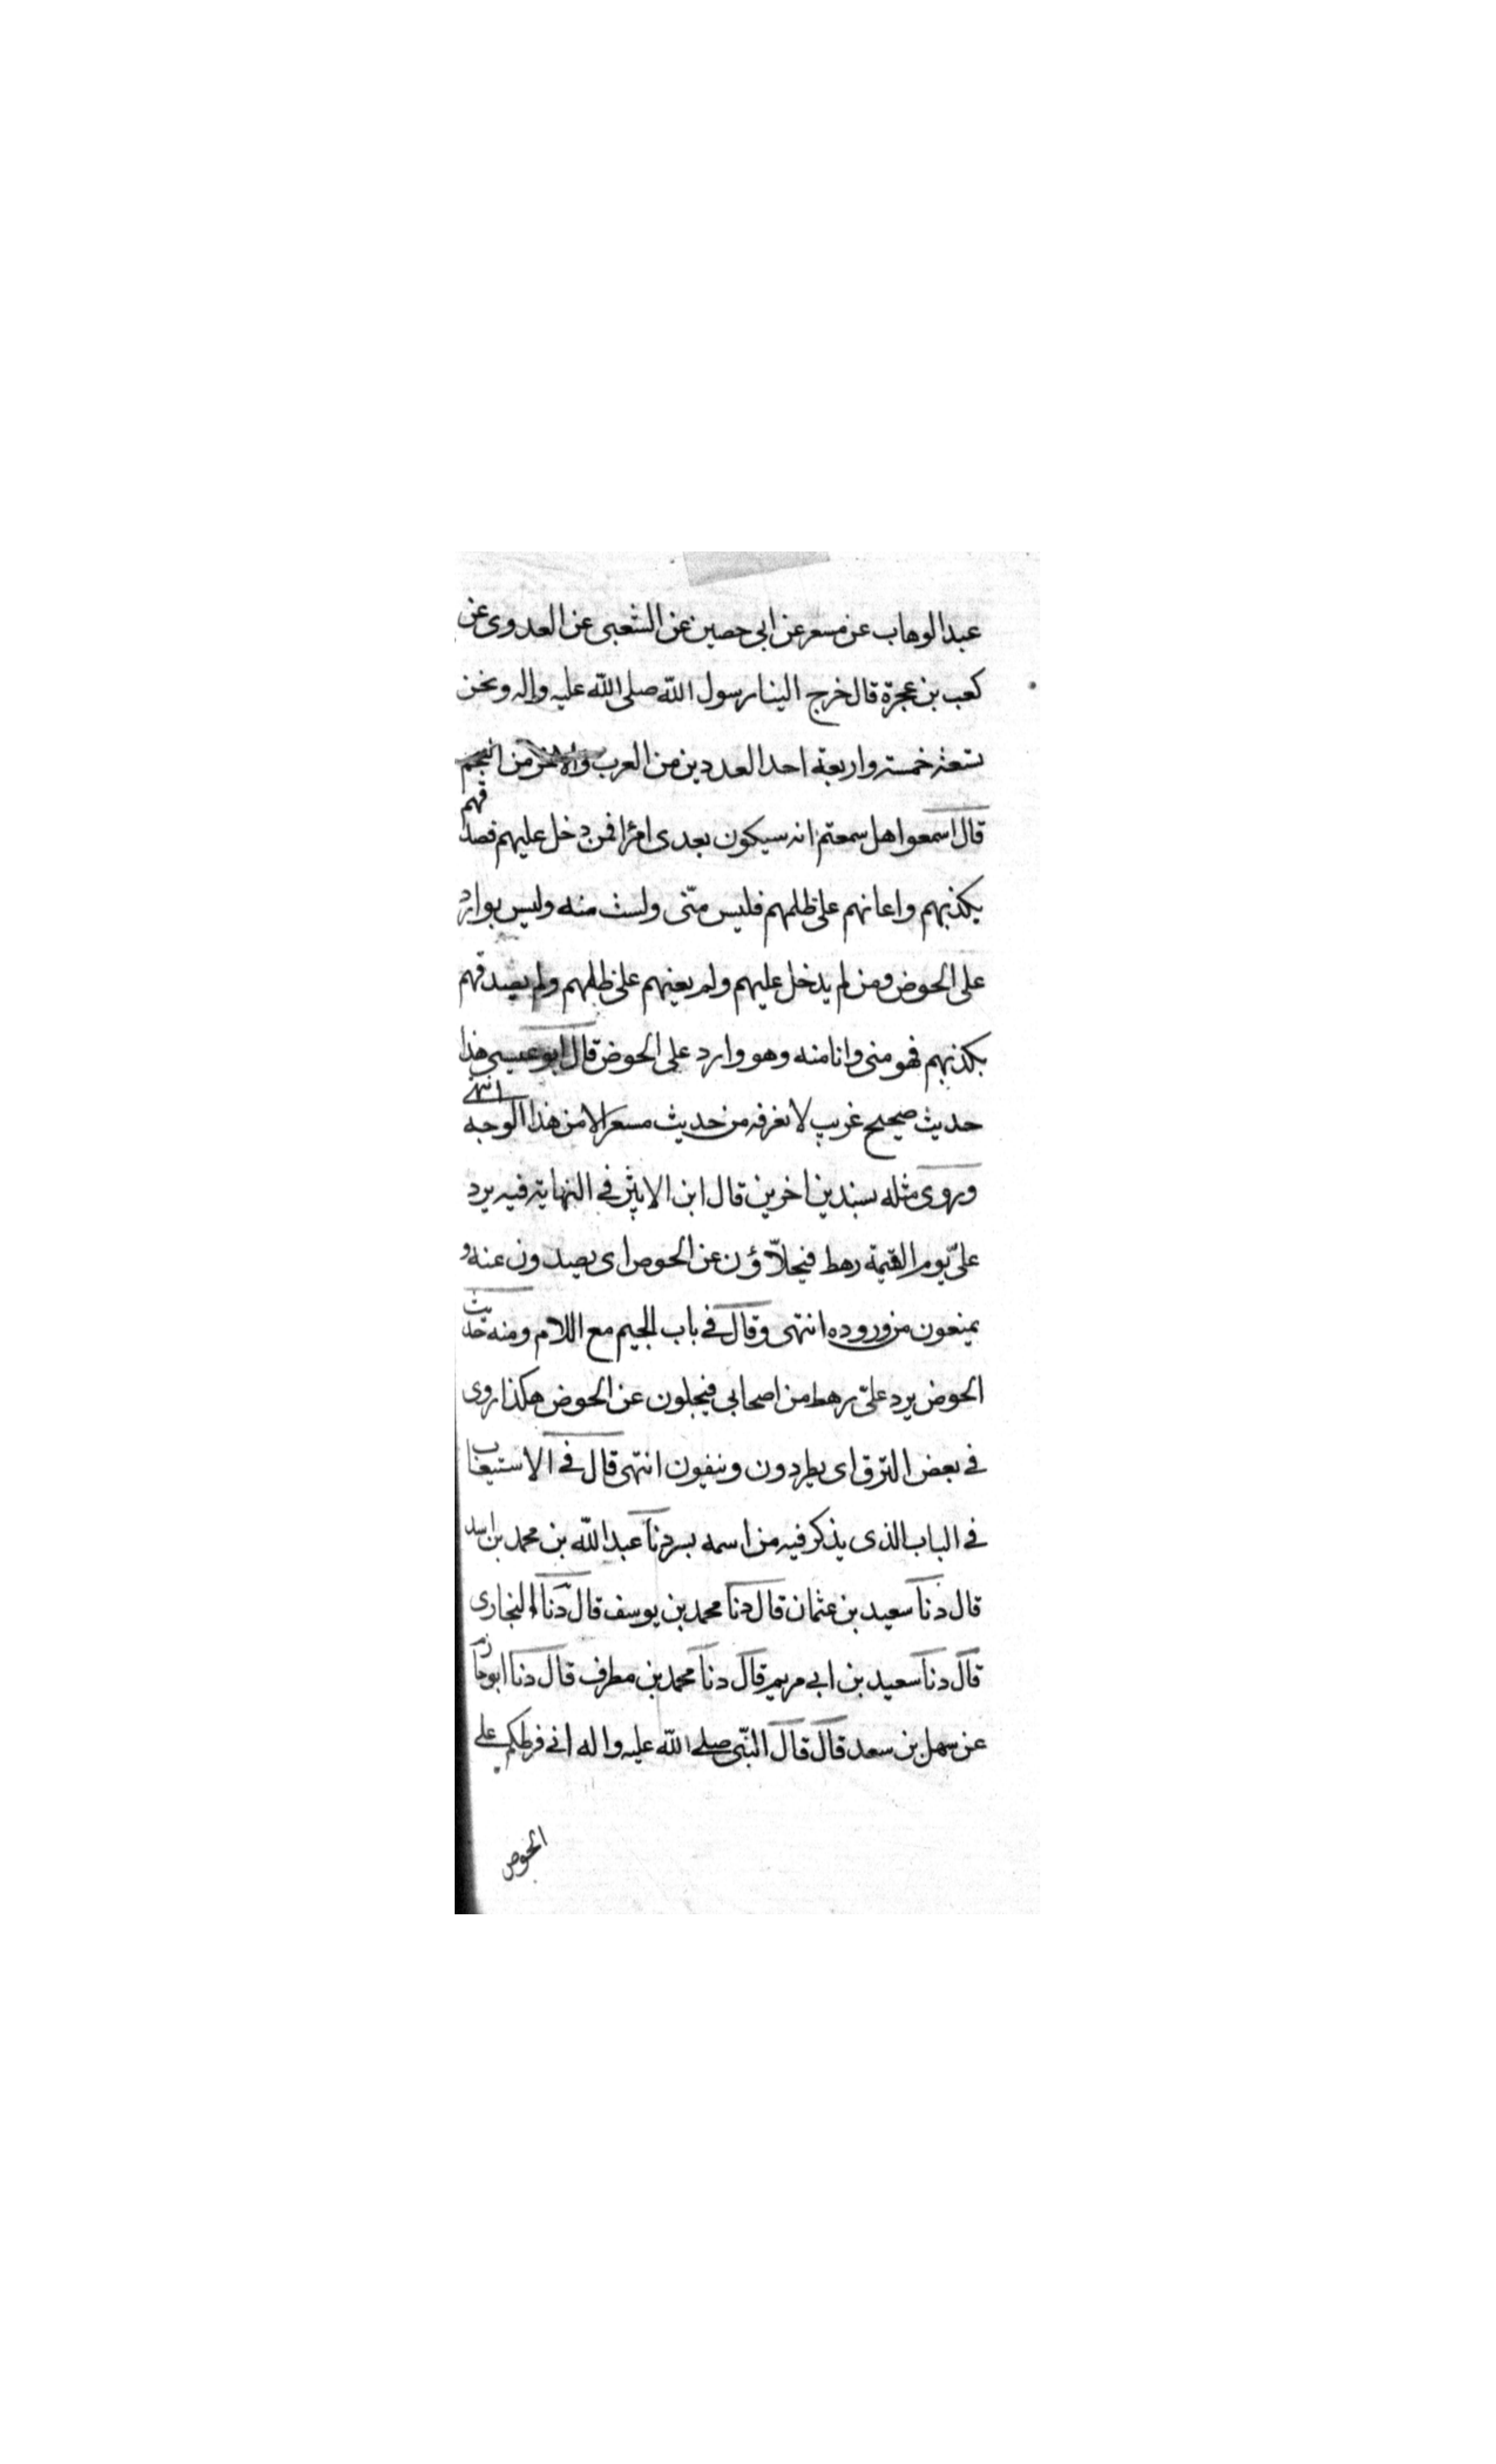 عبد الوهاب عن مسعر عن ابي حصين عن الشعبى عن العدوى عن
كعب بن عجرة قال خرج الينا رسول الله صلى الله عليه واله ونحن
تسعة خمسة واربعة احد العددين من العرب والاخر من العجم
قال اسمعوا هل سمعتم انه سيكون بعدى امراء فمن دخل عليهم فصدقهم
بكذبهم واعانهم على ظلمهم فليس منّى ولست منه وليس بوارد
على الحوض ومن لم يدخل عليهم ولم يعينهم على ظلمهم ولم يصدقهم
بكذبهم فهو منى وانا منه وهو وارد على الحوض قال ابو عيسى هذا
حديث صحيح غريب لا نعرفه من حديث مسعر الا من هذا الوجه انتهى
وروى مثله بسندين اخرين قال ابن الاثير في النهاية فيه يرد
علىّ يوم القيمة رهط فيحلّاؤن عن الحوض اى يصدون عنه و
يمنعون من وروده انتهى وقال في باب الجيم مع اللام ومنه حديث
الحوض يرد علىّ رهط من اصحابي فيجلون عن الحوض هكذا روى
في بعض الترق اى يطردون وينفون انتهى قال في الاستيعاب
في الباب الذى يذكر فيه من اسمه بسر دنا عبد الله بن محمد بن اسد
قال دنا سعيد بن عثمان قال دنا محمد بن يوسف قال دنا البخارى
قال دنا سعيد بن ابي مريم قال دنا محمد بن مطرف قال دنا ابو حازم
عن سهل بن سعد قال قال النبّى صلى الله عليه واله انى فرطكم على
الحوض